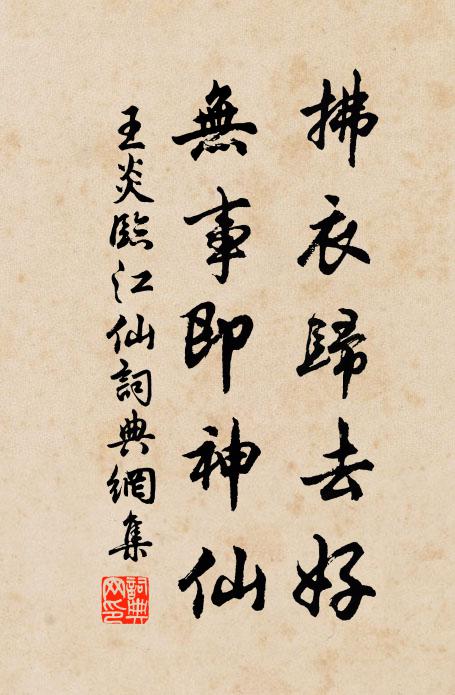 拂衣歸去好
無事即神仙
王炎臨江仙詞典網集
詞典網印